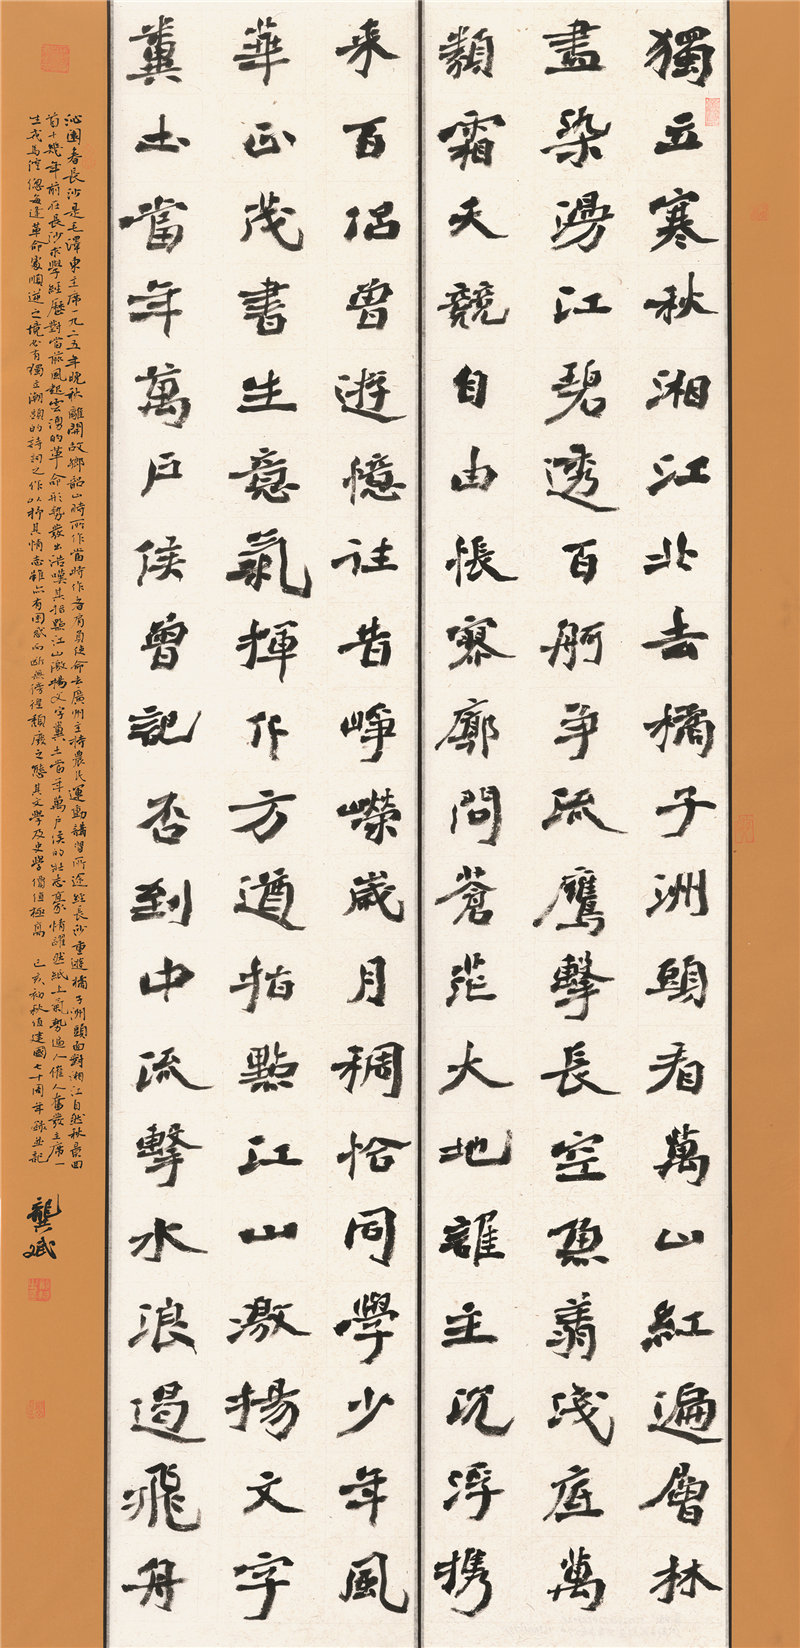 獨立寒秋湘江北去橘子洲頭看萬山紅遍層林
盡染漫江碧透百舸爭流鷹擊長空魚翔淺底萬
類霜天競自由悵寥廓問蒼茫大地誰主沉浮攜
來百侶曾遊憶往昔崢嶸歲月稠恰同學少年風
華正茂書生意氣揮斥方遒指點江山激揚文字
糞土當年萬戶侯曾記否到中流擊水浪遏飛舟
沁園春長沙是毛澤東主席一九二五年晚秋離開故鄉韶山時所作當時作者肩負使命去廣州主持農民運動講習所途經長沙重遊橘子洲頭面對湘江自然秋景回
首十幾年前在長沙求學經歷對當前風起雲湧的革命形勢發出浩嘆其指點江山激揚文字糞土當年萬戶侯的壯志豪情躍然紙上氣勢逼人催人奮發主席一
生戎馬倥傯每逢革命處順逆之境必有獨立潮頭的詩詞之作以抒其情志雖亦有困惑而斷無彷徨頹廢之態其文學及史學價值極高 己亥初秋值建國七十周年錄並記
龔斌